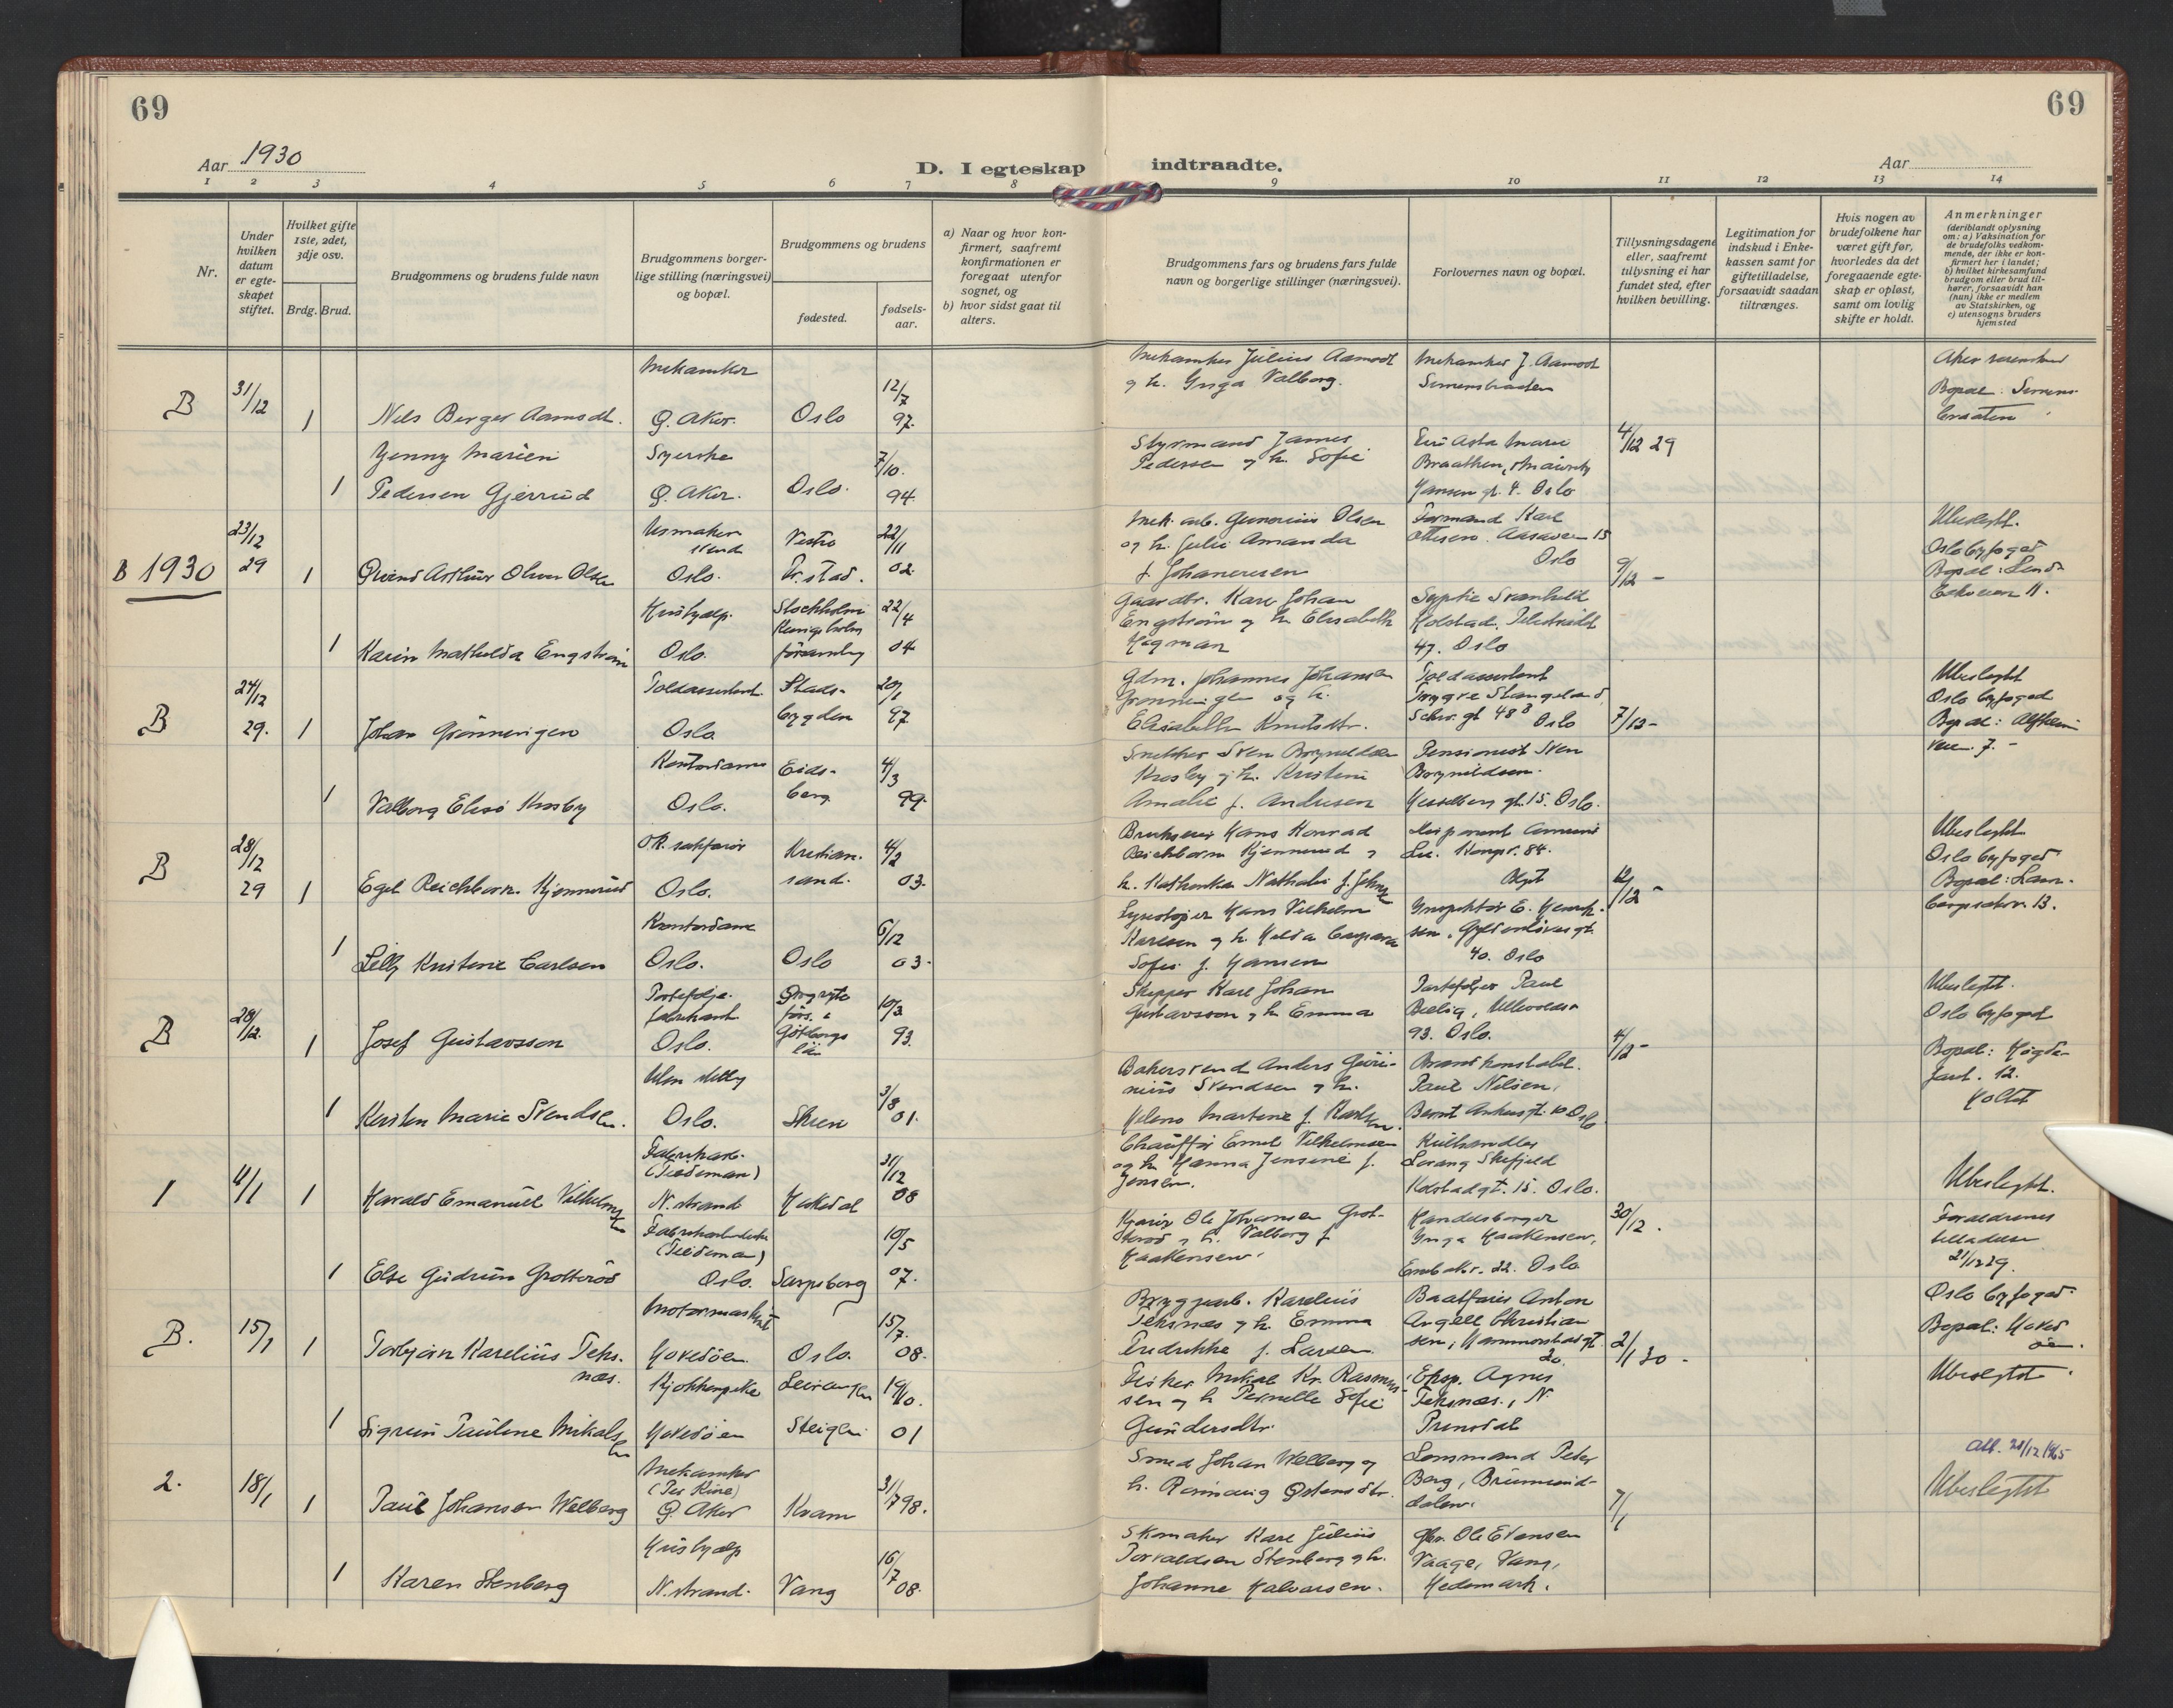 69
69
Aar 1930
D. I egteskap indtraadte.
Aar
1 2 3 4 5 6 7 8 9 10 11 12 13 14
Nr.
Under hvilken datum er egteskapet stiftet.
Hvilket gifte 1ste, 2det, 3dje osv.
Brdg. Brud.
Brudgommens og brudens fulde navn
Brudgommens borgerlige stilling (næringsvei) og bopæl.
Brudgommens og brudens
fødested.
fødselsaar.
a) Naar og hvor konfirmert, saafremt konfirmationen er foregaat utenfor sognet, og
b) hvor sidst gaat til alters.
Brudgommens fars og brudens fars fulde navn og borgerlige stillinger (næringsvei).
Forlovernes navn og bopæl.
Tillysningsdagene eller, saafremt tillysning ei har fundet sted, efter hvilken bevilling.
Legitimation for indskud i Enkekassen samt for giftetilladelse, forsaavidt saadan tiltrænges.
Hvis nogen av brudefolkene har været gift før, hvorledes da det foregaaende egteskap er opløst, samt om lovlig skifte er holdt.
Anmerkninger
(deriblandt oplysning om: a) Vaksination for de brudefolks vedkommende, der ikke er konfirmert her i landet; b) hvilket kirkesamfund brudgom eller brud tilhører, forsaavidt han (hun) ikke er medlem av Statskirken, og c) utensogns bruders hjemsted
B 31/12 1 Nils Berger Aamodt. Mekaniker Ø. Aker. Oslo 12/7 97.
Mekaniker Julius Aamodt
og h. Inga Valborg.
Mekaniker J. Aamodt
Bopæl:
1 Jenny Marien
Pedersen Gjerrud Syerske Ø. Aker. Oslo. 7/10. 94.
Styrmand James
Pedersen og h. Sofie
Braathen,
Jansen gt. 4. Oslo
4/12 29
B 1930 23/12 29 1 Øivind Arthur Olsen Urmaker svend Oslo. 22/11 02.
Mek. arb. Olsen
og h. Julie Amanda
f. Johannesen
Formand Karl
Ottesen. 15
Oslo
9/12 -
Ubeslegtet.
Oslo byfoged
Bopæl:
11.
1 Karin Mathilda Engström Hushjelp. Oslo. Stockholm 22/4 04
Gaardbr. Karl Johan
Engström og h. Elisabeth
Hagman
Holstad,
47. Oslo
B 24/12 29. 1 Johan Grønningen Toldassistent Oslo Stadsbygden 20/1 97
Gdm. Johannes Johansen
Grønningen og h.
Elisabeth Knudsdtr.
Toldassistent
Trygve Stangeland,
gt 48 B Oslo
7/12 -
Ubeslegtet
Oslo byfoged
Bopæl:
7. -
1 Valborg Elise Krosby Kontordame Oslo. Eidsberg 4/3 99.
Snekker Sven Brynildsen
Krosby og h. Kristine
Amalie f. Andresen
Pensionist Sven
Brynildsen.
gt. 15. Oslo.
B 28/12 29 1 Egil Reichborn Kjennerud O.R. sakfører Oslo. Kristiansand. 4/2 03.
Hans Konrad
Reichborn Kjennerud og
h. Nathalie f.
84.
12/12 -
Ubeslegtet
Oslo byfoged
Bopæl:
13.
1 Lilly Kristine Carlsen Kontordame Oslo. Oslo 6/12 03.
Hans Vilhelm
Karlsen og h. Hilda
Sofie f. Hansen
Inspektør E. Henriksen, Gyldenløvesgt.
40. Oslo
B 28/12. 1 Josef Gustavsson Oslo. Götborgs län 10/3 93.
Skipper Karl Johan
Gustavsson og h. Emma
Paul
93. Oslo.
4/12 -
Ubeslegtet.
Oslo byfoged
Bopæl:
12.
1 Kirsten Marie Svendsen. Uten stilling Oslo. Skien 3/8 01.
Bakersvend Anders
Svendsen og h.
Helene Martine f. Karlsen.
Brandkonstabel.
Paul Nielsen,
Bernt Ankers gt. 10 Oslo
1 4/1 1 Harald Emanuel Vilhelmsen Fabrikarb. (Tiedeman) N. strand Hakedal 31/12 08
Chauffør Emil Vilhelmsen
og h. Hanna Jensine f.
Jensen.
Kulhandler
Kolstadgt. 15. Oslo.
30/12.
Ubeslegtet.
Foraldrenes
tilladelse
21/12 29.
1 Else Gudrun Grotterød (Tiedeman) Oslo. Sarpsborg 10/5 07.
Ole Johansen Grotterød og h. Valborg f
Haakensen.
Handelsborger
Inga Haakensen,
22. Oslo
B. 15/1 1 Torbjørn Karelius Teksnæs. Motormaskinist Hovedøen. Oslo. 15/7. 08.
Bryggearb. Karelius
Teksnæs og h. Emma
Fredrikke f. Larsen
Baatfører Anton
Angell Christiansen, Hammerstadgt.
20.
2/1 30 -
Oslo byfoged
Bopæl: Hovedøen.
Ubeslegtet.
1 Sigrun Pauline Mikalsen Kjøkkenpike Hovedøen Steigen 19/10. 01
Fisker Mikal Kr. Rasmussen og h Pernille Sofie
Gundersdtr.
Eksp. Agnes
Teksnæs, N.
Prinsdal
2. 18/1 1 Paul Johansen Welberg Mekaniker Ø. Aker Kvam 31/7 98.
Smed Johan Welberg og
h. Rønnaug Østensdtr.
Lensmand Peter
Berg, Brumunddalen.
7/1
Att. 20/12 1965
Ubeslegtet
1 Karen Stenberg Hushjelp N. strand. Vang 16/7 08.
Skomaker Karl Julius
Torvaldsen Stenberg og h.
Johanne Halvorsen.
Gbr. Ole Evensen
Vaage, Vang,
Hedemark.